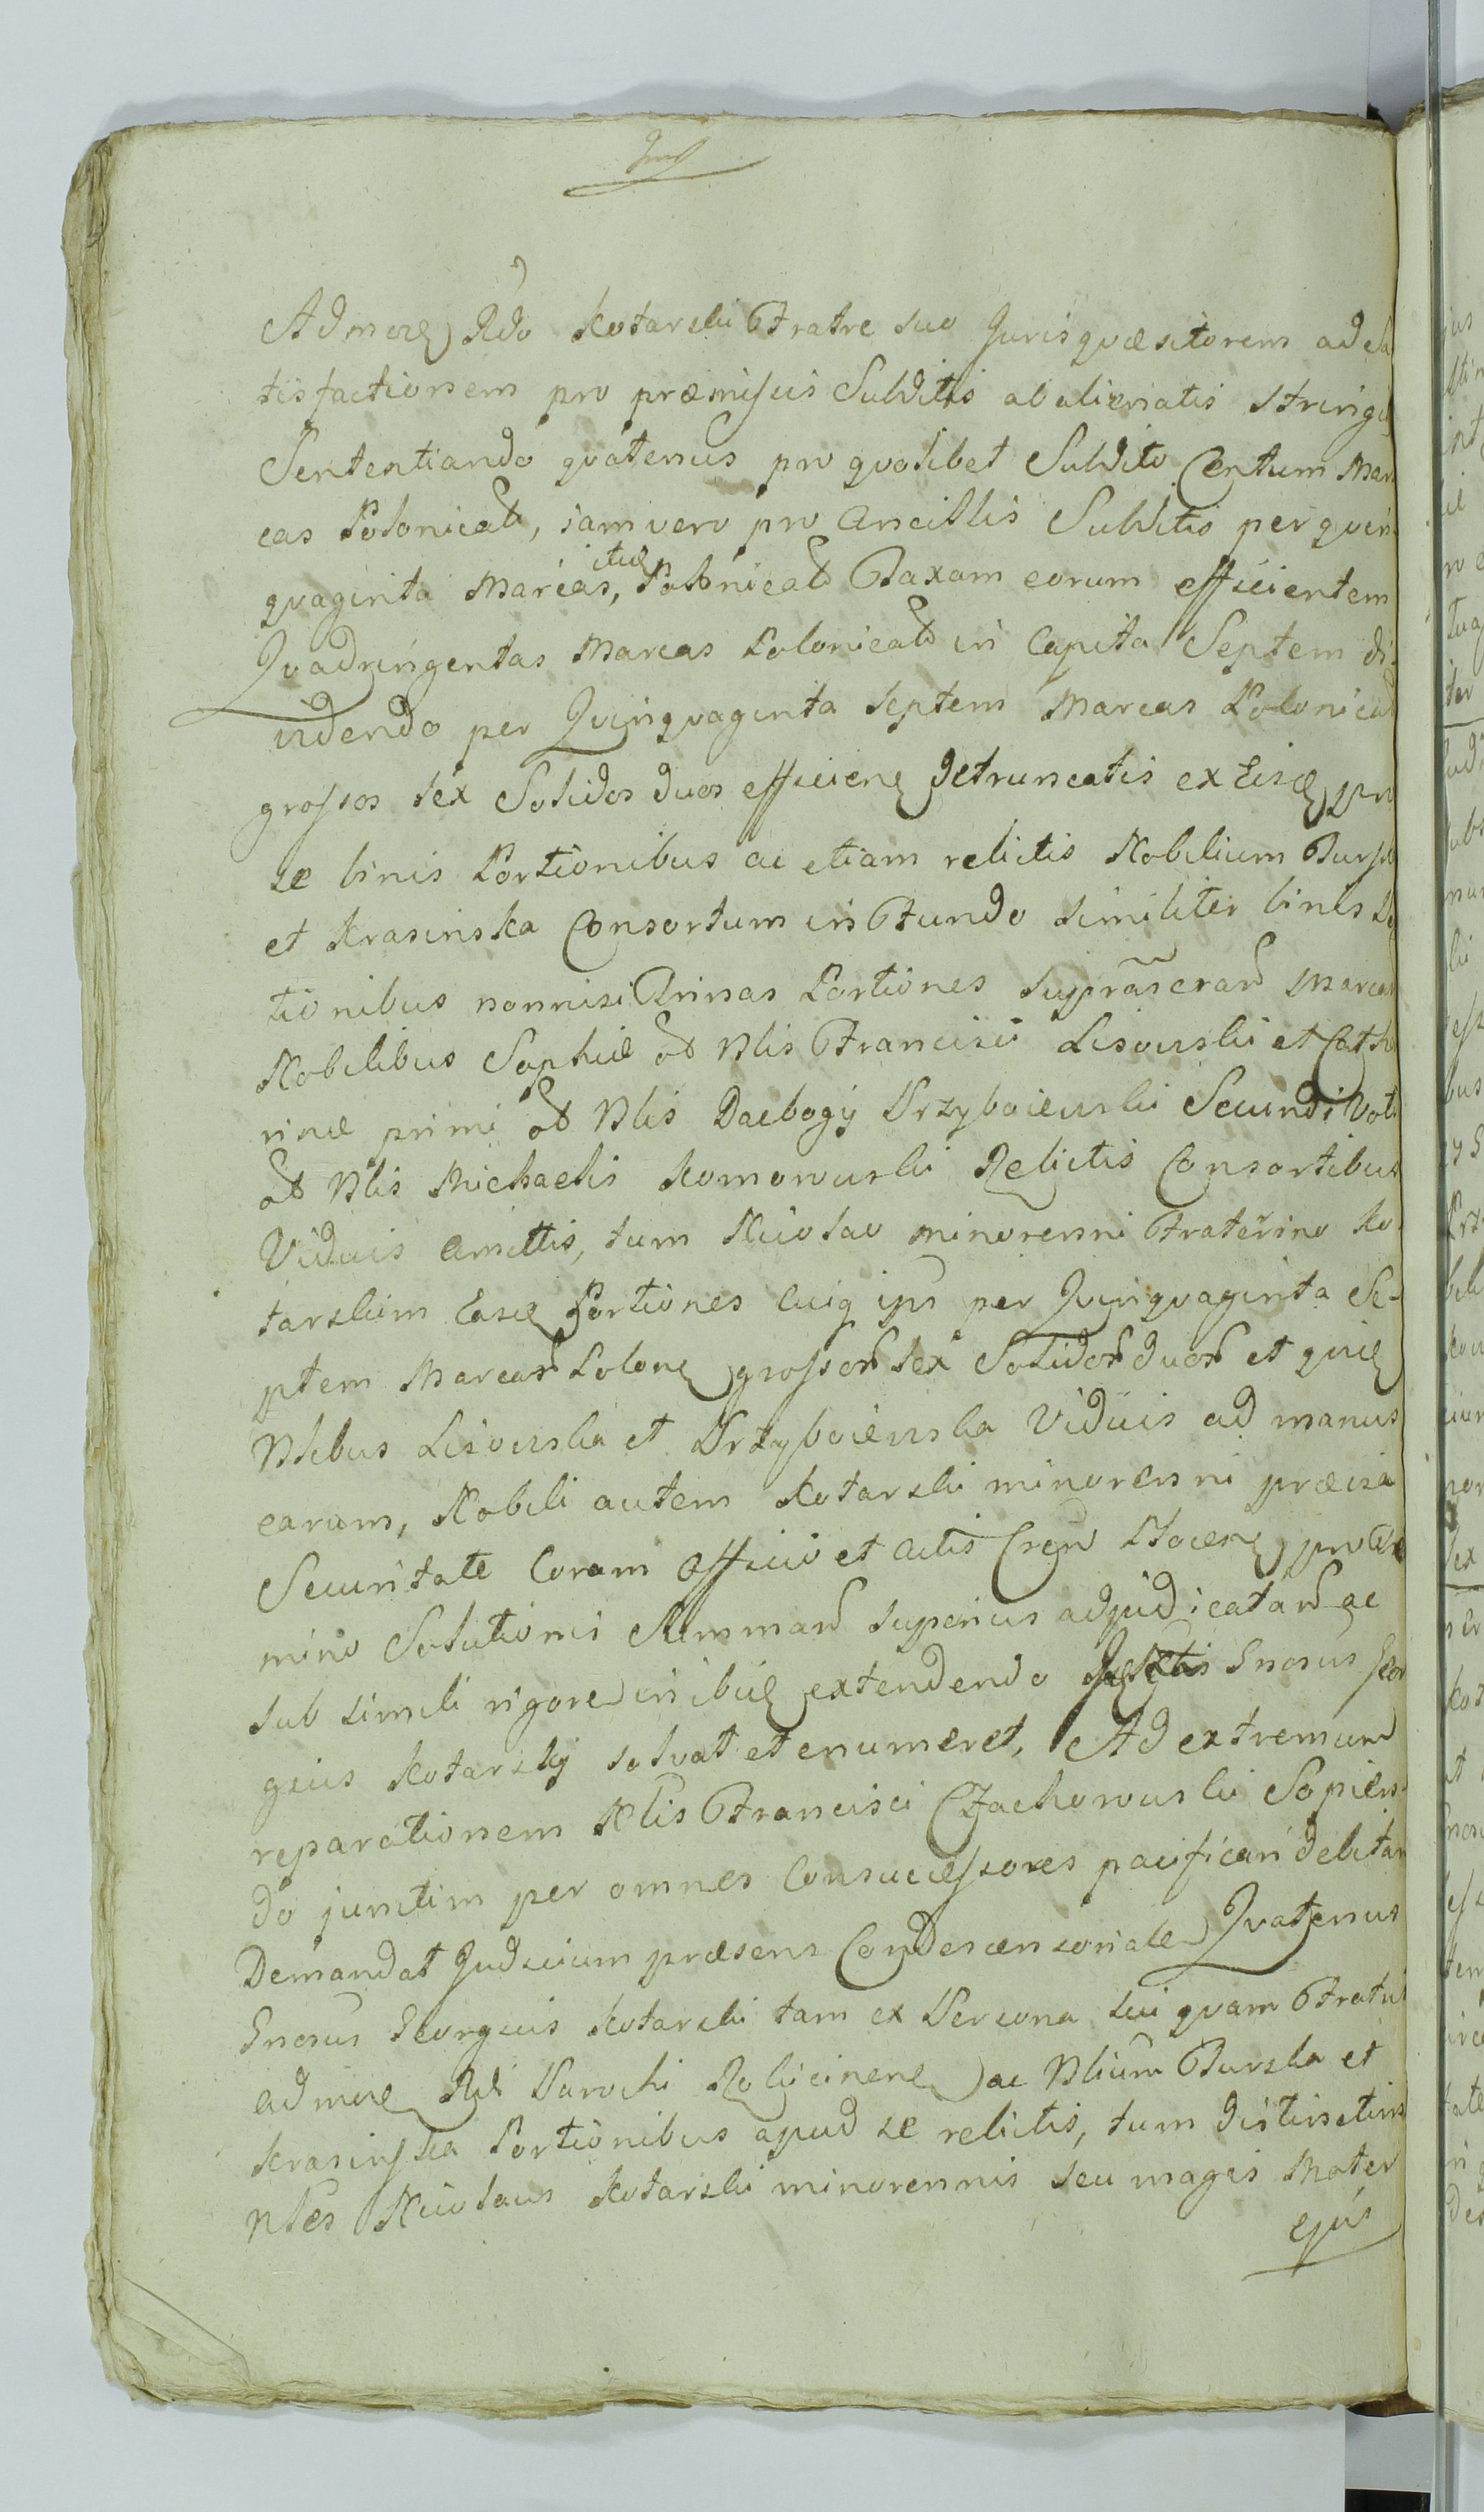 Admore Rdo Kotarski Fratre suo Jurisquæsitorem ad Sa
tisfactionem pro præmissis Subditis abalienatis stringit
Sententiando quatenus pro quolibet Subdito Centum Mar
cas Polonicales, iam vero pro Ancillis Subditis per quin
quaginta Marcas, Polonicales Taxam eorum efficientem
Quadringentas Marcas Polonicales in Capita Septem di
videndo per Quinquaginta septem Marcas Polonicales
grossos sex Solidos duos efficien detruncatis ex eisq pro
se binis Portionibus ac etiam relictis Nobilium Burska
et Krasinska Consortum in Fundo similiter binis Por
tionibus nonnisi Trinas Portiones supra Marcar
Nobilibus Sophiæ ol Nlis Francisci Lisowski et Catha
rinæ primi ol Nlis Daebogij Przyboiewski Secundi Voti
ol Nlis Michaelis Komorowski Relictis Consortibus
Viduis Amittis, tum Nicolao minorenni Fraterino Ko
tarskim Easq Portiones cuiq ipsor per Quinquaginta Se
ptem Marcar Polone grossor sex Solidor duor et quiq
Nlibus Lisowska et Przyboiewska Viduis ad manus
earum, Nobili autem Kotarski minorenni præcisa
Securitate Coram Officio et Actis Cren Plocen pro Ter
mino Solutioni Summar superius adjudicatar ac
sub simili rigore inibiq extendendo Gnosus Geor
gius Kotarskij solvat et enumeret, Ad extremum
reparationem Nlis Francisci Czachorowski Sopien
do junctim per omnes Consuccessores pacificari debitam
Demandat Judicium præsens Condescensoriale Quatenus
Gnosus Georgius Kotarski tam ex Persona sui quam Fratris
admore Rdi Parochi Rolijcinen ac Nlium Burska et
Krasinska Portionibus apud se relictis, tum distinctim
Nles Nicolaus Kotarski minorennis seu magis Mater
ejus